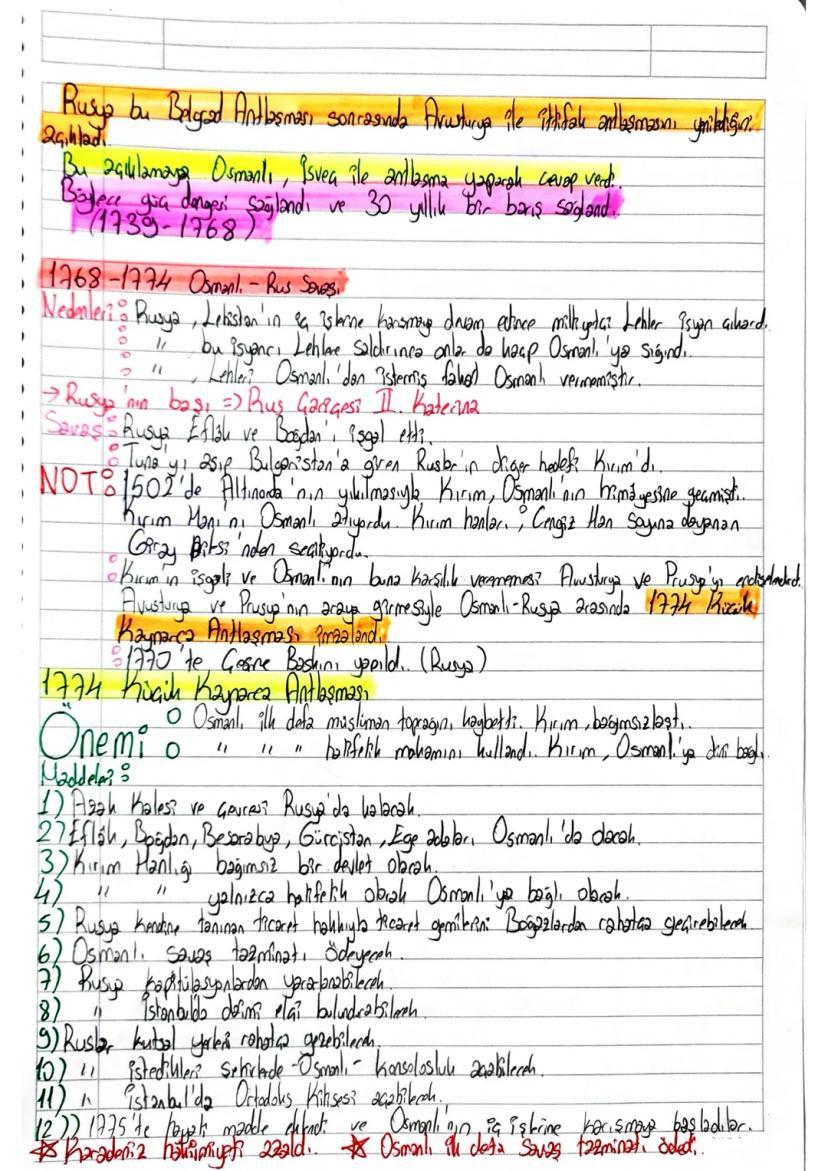 Rusya bu Belgrad Antlaşması sonrasında Avusturya ile ittifak antlaşmasını yenilediğini
açıkladı.
Bu açıklamaya Osmanlı, İsveç ile antlaşma yaparak cevap verdi.
Böylece güç dengesi sağlandı ve 30 yıllık bir barış sağlandı.
(1739-1768)
1768-1774 Osmanlı - Rus Savaşı
Nedenleri: Rusya, Lehistan'ın iç işlerine karışmaya devam edince milliyetçi Lehler isyan çıkardı.
" bu isyancı Lehlere saldırınca onlar da kaçıp Osmanlı'ya sığındı.
", Lehleri Osmanlı'dan istemiş fakat Osmanlı vermemiştir.
→ Rusya'nın başı => Rus Çariçesi II. Katerina
Savaş: Rusya Eflâk ve Boğdan'ı işgal etti.
Tuna'yı aşıp Bulgaristan'a giren Ruslar'ın diğer hedefi Kırım'dı.
NOT: 1502'de Altınorda'nın yıkılmasıyla Kırım, Osmanlı'nın himayesine geçmişti.
Kırım Hanı'nı Osmanlı atıyordu. Kırım hanları; Cengiz Han soyuna dayanan
Giray Ailesi'nden seçiliyordu.
Kırım'ın işgali ve Osmanlı'nın buna karşılık verememesi Avusturya ve Prusya'yı endişelendirdi.
Avusturya ve Prusya'nın araya girmesiyle Osmanlı-Rusya arasında 1774 Küçük
Kaynarca Antlaşması imzalandı.
1770'te Çeşme Baskını yapıldı. (Rusya)
1774 Küçük Kaynarca Antlaşması
Önemi
o Osmanlı ilk defa müslüman toprağını kaybetti. Kırım, bağımsızlaştı.
o " " " halifelik makamını kullandı. Kırım, Osmanlı'ya dini bağlı.
Maddeleri:
1) Azak Kalesi ve çevresi Rusya'da kalacak.
2) Eflâk, Boğdan, Besarabya, Gürcistan, Ege adaları Osmanlı'da olacak.
3) Kırım Hanlığı bağımsız bir devlet olacak.
4) " " yalnızca halifelik olarak Osmanlı'ya bağlı olacak.
5) Rusya kendine tanınan ticaret hakkıyla ticaret gemilerini Boğazlardan rahatça geçirebilecek.
6) Osmanlı savaş tazminatı ödeyecek.
7) Rusya kapitülasyonlardan yararlanabilecek.
8) " İstanbulda daimi elçi bulundurabilecek.
9) Ruslar kutsal yerleri rahatça gezebilecek.
10) " istedikleri şehirlerde -Osmanlı- konsolosluk açabilecek.
11) " İstanbul'da Ortodoks Kilisesi açabilecek.
12)) 1775'te madde eklendi ve Osmanlı'nın iç işlerine karışmaya başladılar.
☆ Karadeniz hakimiyeti azaldı. ☆ Osmanlı ilk defa savaş tazminatı ödedi.